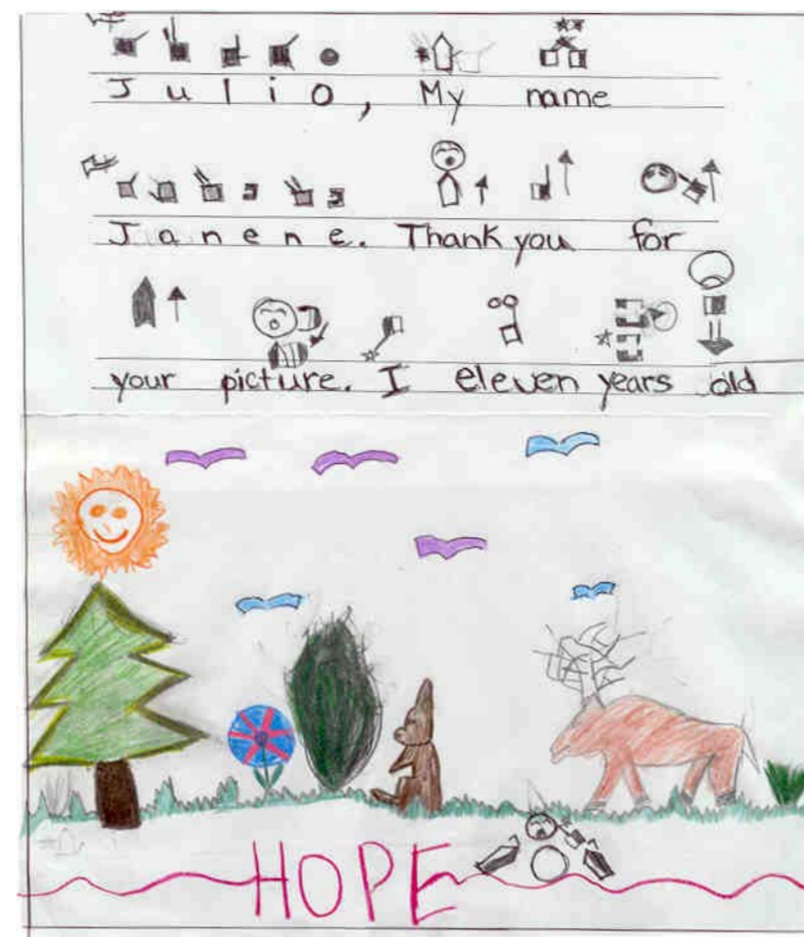 Julio, My name
Janene. Thank you for
your picture. I eleven years old
HOPE